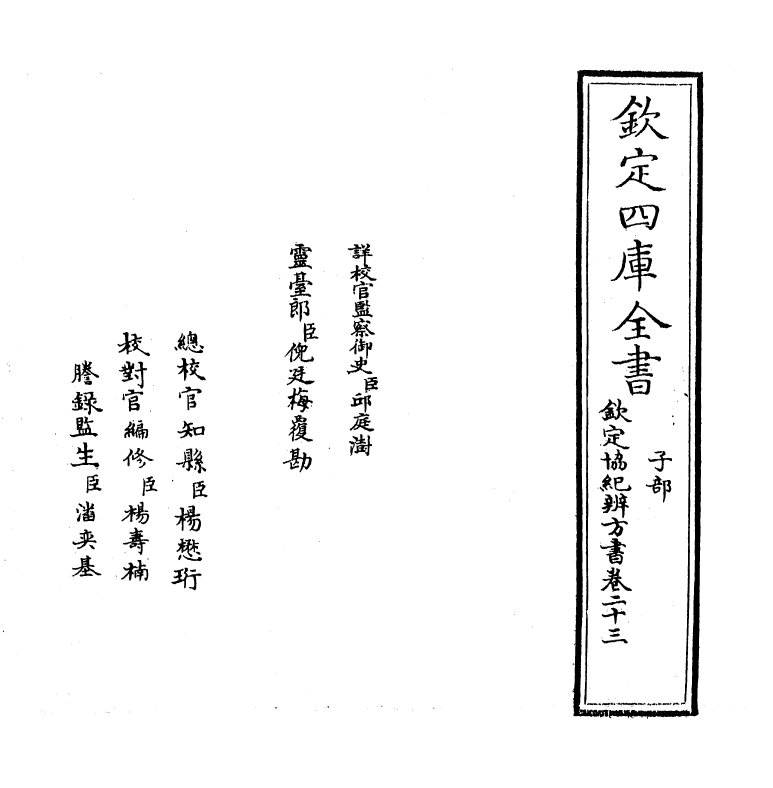 欽定四庫全書
子部
欽定協紀辨方書卷二十三
詳校官監察御史臣邱庭澍
靈臺郎臣倪廷梅覆勘
總校官知縣臣楊懋珩
校對官編修臣楊壽楠
謄錄監生臣潘奕基